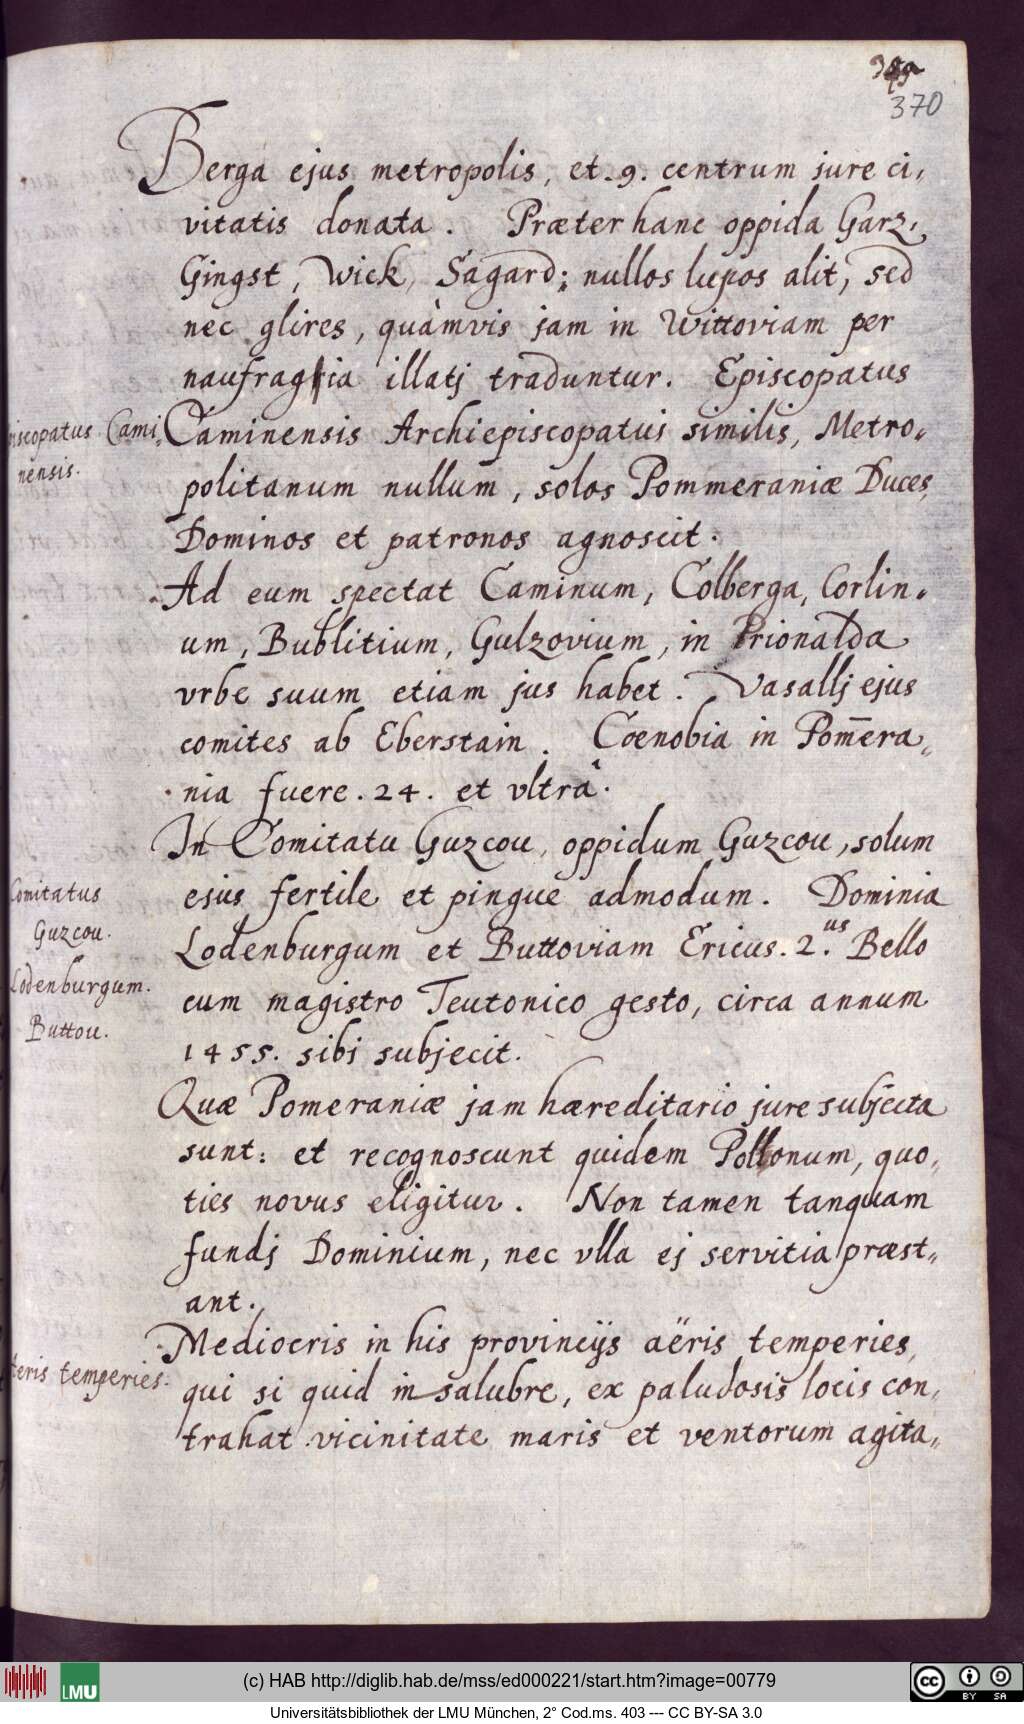 370
Berga ejus metropolis, et .9. centrum jure ci,
vitatis donata. Præter hanc oppida Garz,
Gingst, Wick, Sagard; nullos lupos alit, sed
nec glires, quàmvis jam in Wittoviam per
naufragia illatj traduntur. Episcopatus
Episcopatus Cami,
nensis.
Caminensis Archiepiscopatui similis, Metro,,
politanum nullum, solos Pommeraniæ Duces,
Dominos et patronos agnoscit.
Ad eum spectat Caminum, Colberga, Corlin,,
um, Bublitium, Gulzovium, in Prionalda
vrbe suum etiam jus habet. Vasallj ejus
comites ab Eberstain. Coenobia in Pom̅era,,
nia fuere .24. et vltrà.
In Comitatu Guzcou, oppidum Guzcou, solum
Comitatus
Guzcou.
eius fertile et pingue admodum. Dominia
Lodenburgum.
Buttou.
Lodenburgum et Buttoviam Ericus .2.us Bello
cum magistro Teutonico gesto, circa annum
1455. sibi subjecit.
Quæ Pomeraniæ jam hæreditario jure subjecta
sunt: et recognoscunt quidem Pollonum, quo,
ties novus eligitur. Non tamen tanquam
fundj Dominium, nec vlla ej servitia præst,,
ant.
Mediocris in his provincijs aëris temperies,
aeris temperies.
qui si quid in salubre, ex paludosis locis con,
trahat vicinitate maris et ventorum agita,,
LMU
(c) HAB http://diglib.hab.de/mss/ed000221/start.htm?image=00779
cc BY SA
Universitätsbibliothek der LMU München, 2° Cod.ms. 403 --- CC BY-SA 3.0